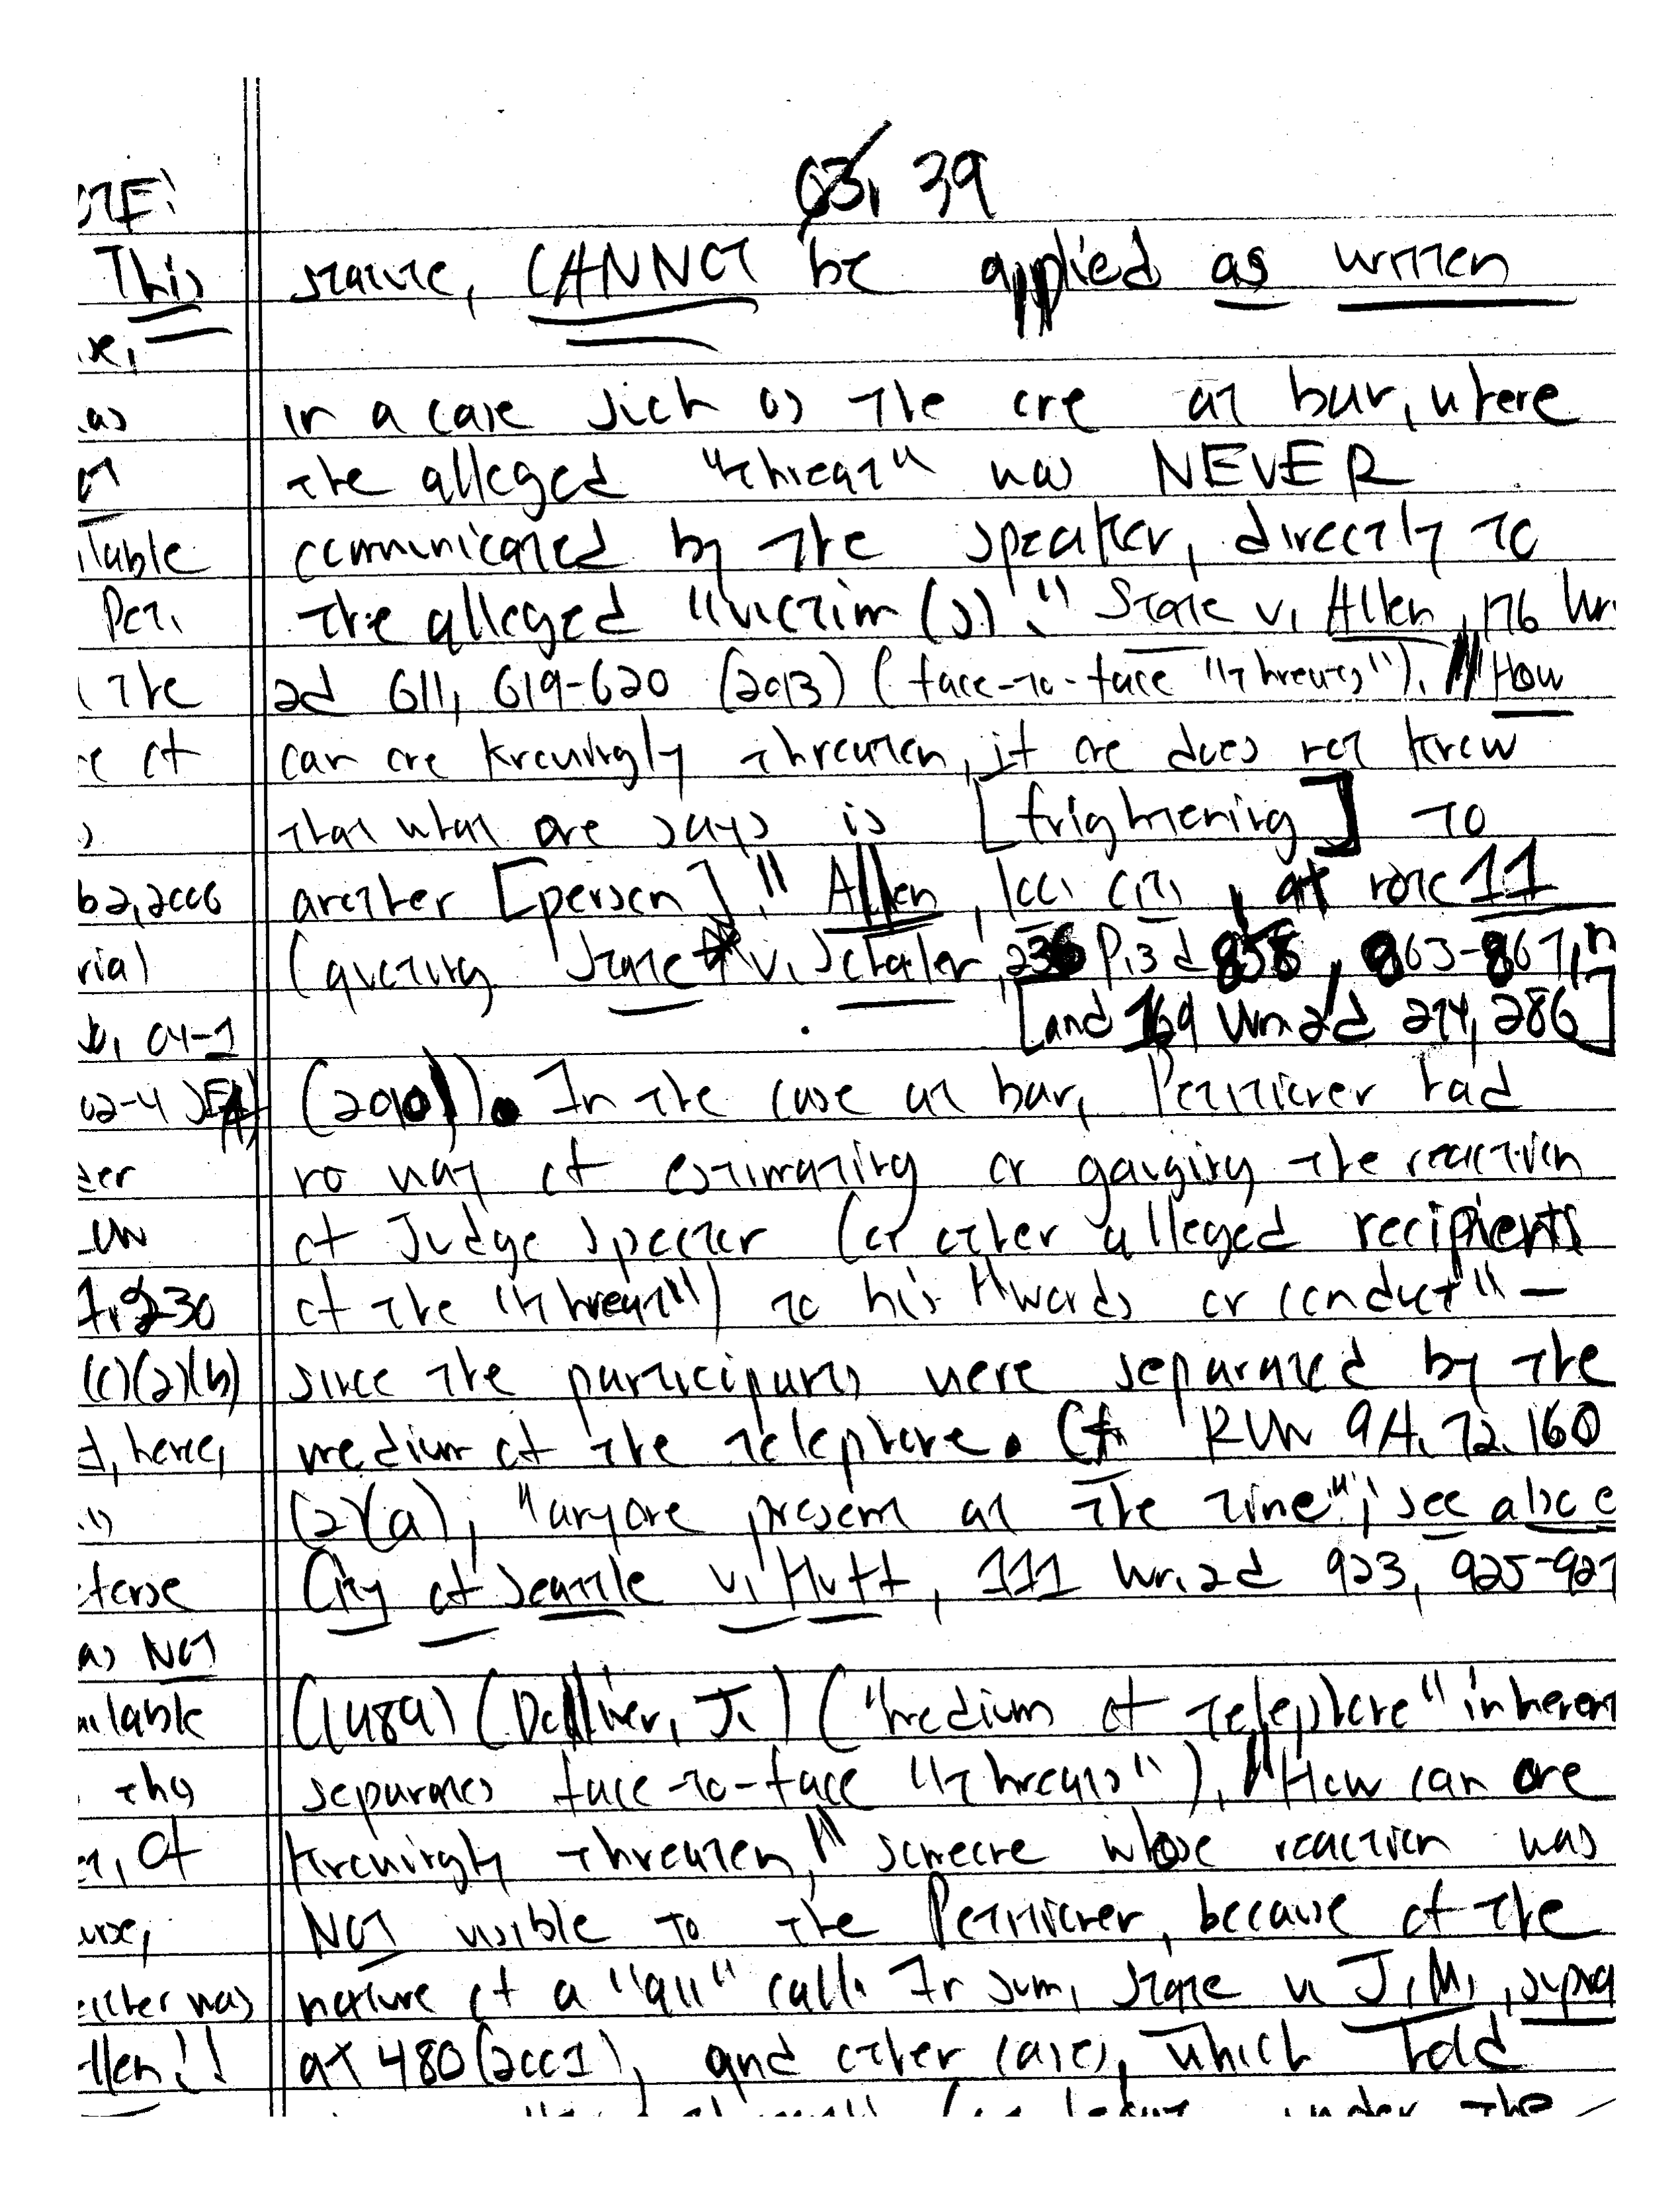 39
statute, CANNOT be applied as written
in a case such as the one at bar, where
the alleged "threat" was NEVER
communicated by the speaker, directly to
the alleged "victim(s)." State v. Allen, 176 Wn.
2d 611, 619-620 (2013) (face-to-face "threats"). "How
can one knowingly threaten, if one does not know
that what one says is [frightening] to
another [person]." Allen, loc. cit., at note 11
(quoting State v. Schaler, 236 P.3d 858, 863-867, n
[and 169 Wn2d 274, 286]
(2010)). In the case at bar, Petitioner had
no way of estimating or gauging the reaction
of Judge Spector (or other alleged recipients
of the "threat") to his "words or conduct" –
since the participants were separated by the
medium of the telephone. Cf. RCW 9A.72.160
(2)(a), "anyone present at the time"; see also e
City of Seattle v. Huff, 111 Wn.2d 923, 925-927
(1989) (Dolliver, J.) ("medium of telephone" inheren
separates face-to-face "threats"). "How can one
knowingly threaten," someone whose reaction was
NOT visible to the Petitioner, because of the
nature of a "911" call. In sum, State v. J.M., supra
at 480 (2001), and other cases, which hold
under the
This
as
ilable
Pet.
the
of
b 2, 2006
rial
04-1
02-4 SEA)
der
230
(c)(2)(b)
d, here,
as NOT
ailable
of
either was
llen!!